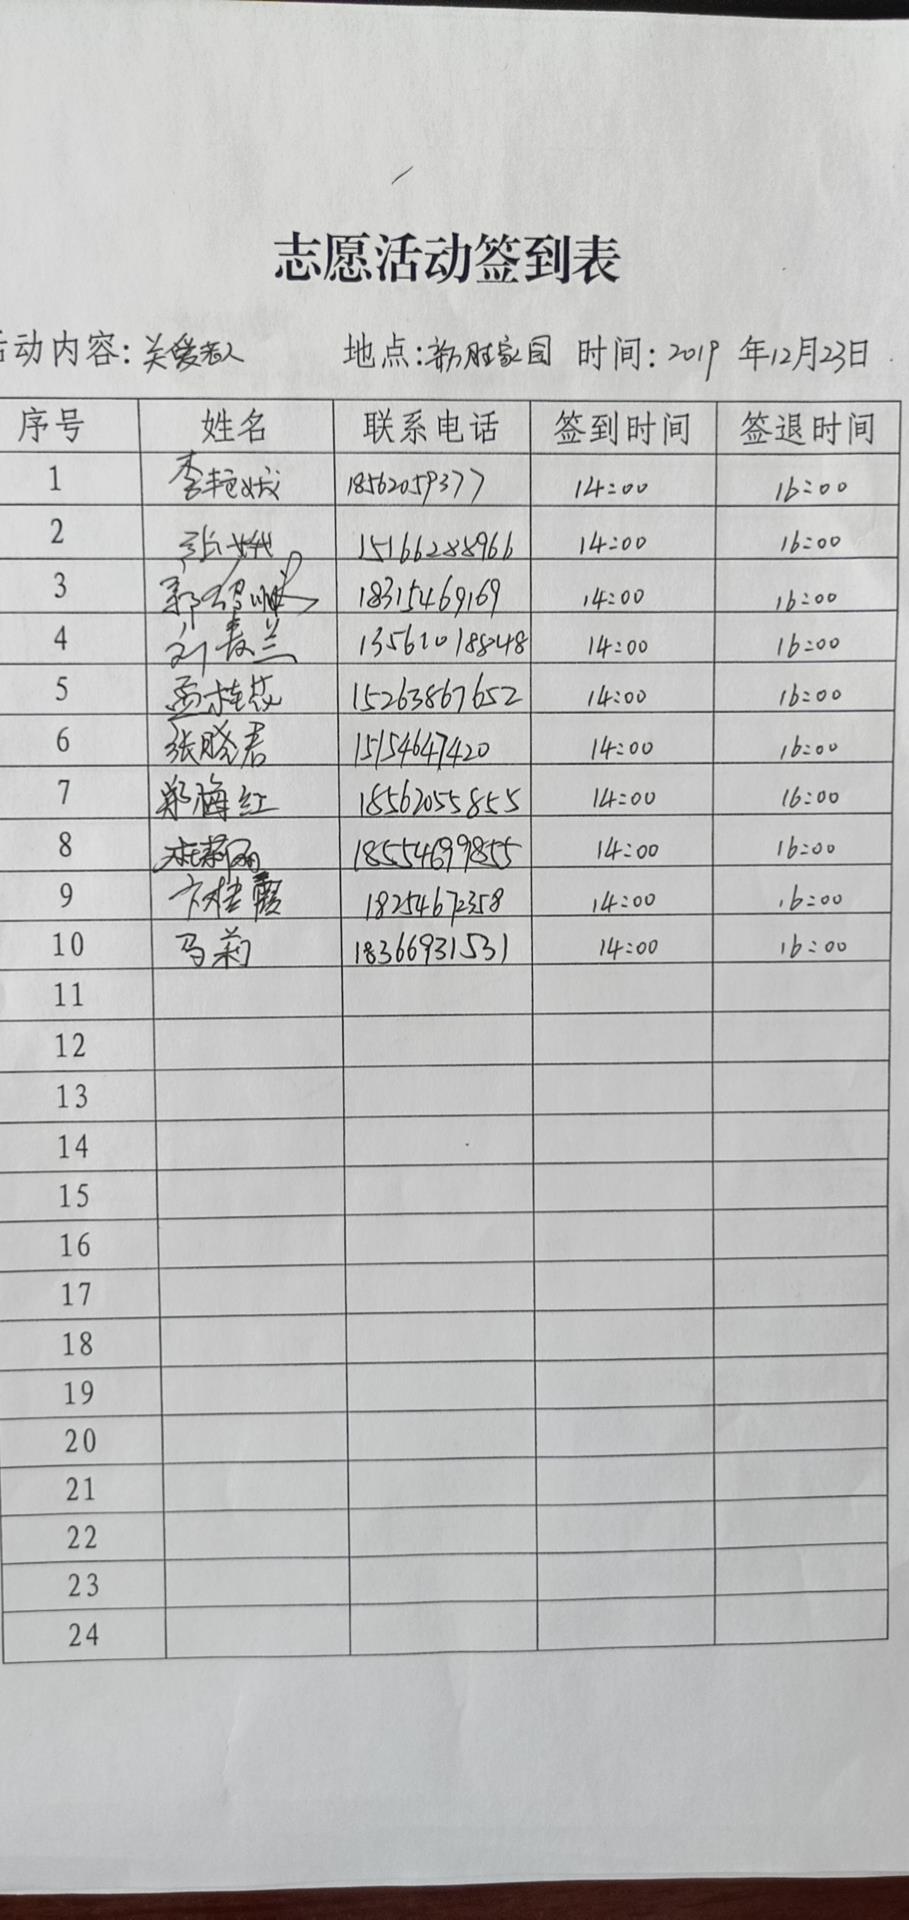 志愿活动签到表
动内容:关爱老人 地点:新胜家园 时间:2019 年12月23日
序号 姓名 联系电话 签到时间 签退时间
1 李艳 18562059377 14:00 16:00
2 张 15166288966 14:00 16:00
3 郭 18315469169 14:00 16:00
4 刘春兰 14:00 16:00
5 孟桂芬 15263867652 14:00 16:00
6 张晓君 15154647420 14:00 16:00
7 郑海红 18562055855 14:00 16:00
8 18554699855 14:00 16:00
9 卞桂霞 18254672358 14:00 16:00
10 马莉 18366931531 14:00 16:00
11
12
13
14
15
16
17
18
19
20
21
22
23
24